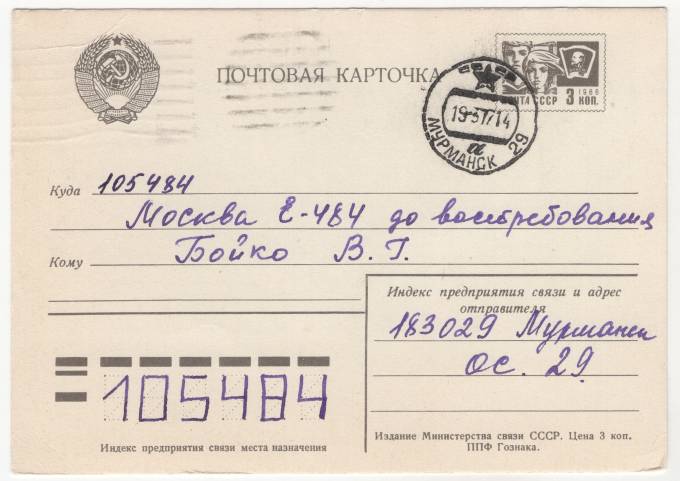 ПОЧТОВАЯ КАРТОЧКА
ПОЧТА СССР 3 КОП.
1966
МУРМАНСК 29
Куда 105484
Москва Е-484 до востребования
Кому Бойко В. Г.
Индекс предприятия связи и адрес
отправителя
183029 Мурманск
ос. 29
105484
Индекс предприятия связи места назначения
Издание Министерства связи СССР. Цена 3 коп.
ППФ Гознака.